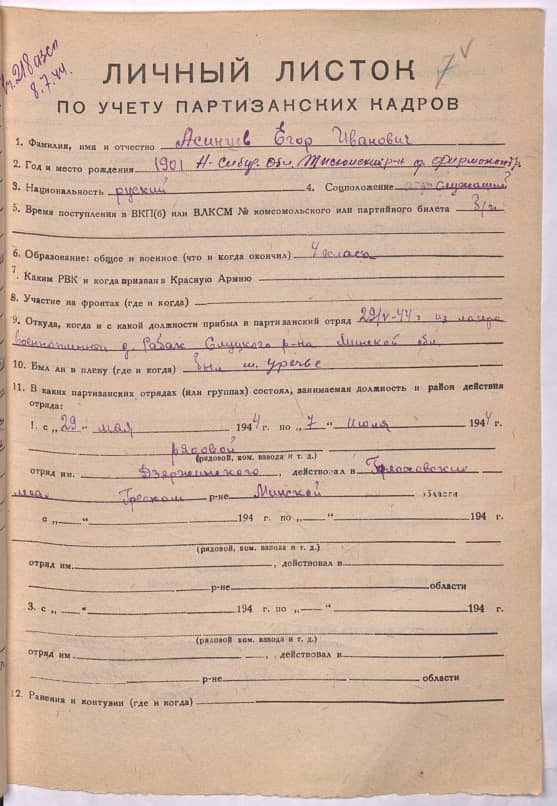 218 азсп
8.7.44.
7
ЛИЧНЫЙ ЛИСТОК
ПО УЧЕТУ ПАРТИЗАНСКИХ КАДРОВ
1. Фамилия, имя и отчество Асинцев Егор Иванович
2. Год и место рождения 1901 Н-Сибир. обл.
3. Национальность руский 4. Соцположение служащий
5. Время поступления в ВКП(б) или ВЛКСМ № комсомольского или партийного билета
6. Образование: общее и военное (что и когда окончил) 4 класа
7. Каким РВК и когда призван в Красную Армию
8. Участие на фронтах (где и когда)
9. Откуда, когда и с какой должности прибыл и партизанский отряд 29/V-44 г из лагеря
военнопленой д. Рабак Слуцкого р-на Минской обл
10. Был ли в плену (где и когда) был м. уречье
11. В каких партизанских отрядах (или группах) состоял, занимаемая должность и район действия
отряда:
1. с „29“ мая 1944 г. по „7“ июля 1944 г.
рядовой
(рядовой, ком. взвода и т. д.)
отряд им. Дзержинского, действовал в
Греском р-не Минской области
с „ “ 194 г. по „ “ 194 г.
(рядовой, ком. взвода и т. д.)
отряд им. , действовал в
р-не области
3. с „ “ 194 г. по „ “ 194 г.
(рядовой, ком. взвода и т. д.)
отряд им , действовал в
р-не области
12. Ранения и контузии (где и когда)